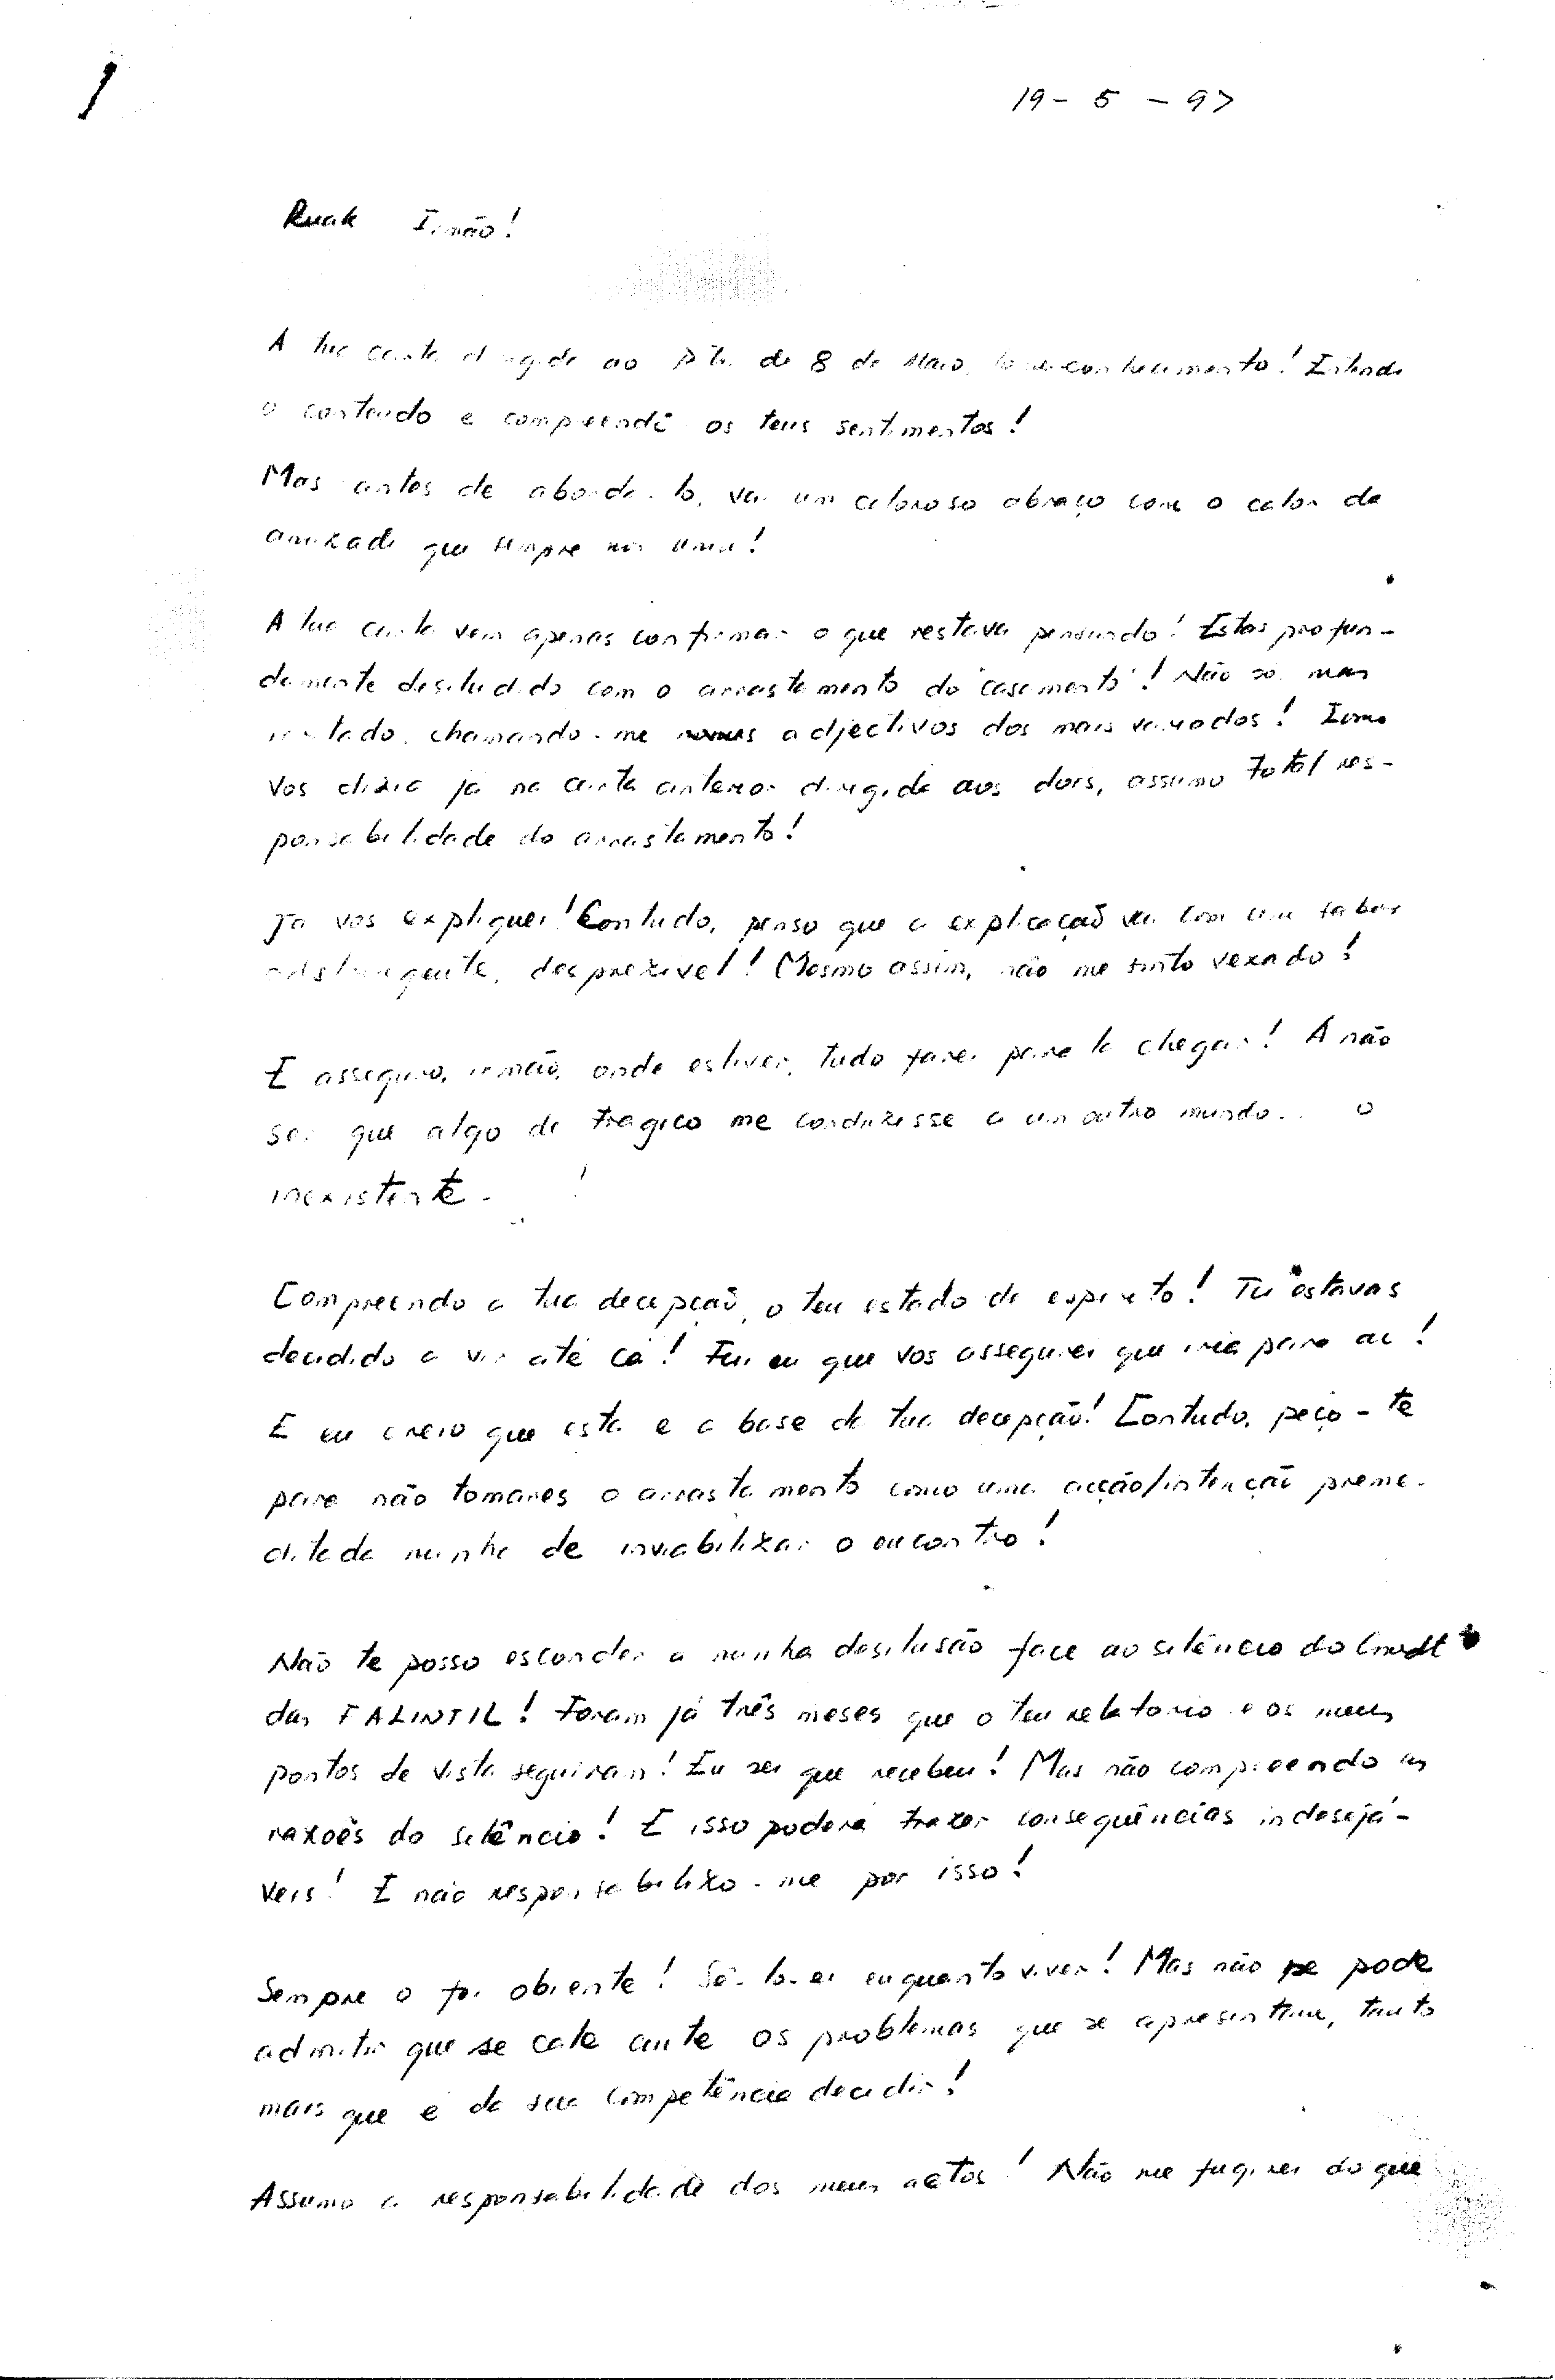 1
19 - 5 - 97
Ruak Irmão!
A tua carta dirigida ao de 8 de Maio, conhecimento! Entendi
o conteudo e compreendi os teus sentimentos!
Mas antes de aborda-lo, vai um caloroso abraço com o calor da
amizade que sempre nos uniu!
A tua carta vem apenas confirmar o que restava pensando! Estás profun-
damente desiludido com o arrastamento do 'casamento'! Não só, mas
chamando-me adjectivos dos mais variados! Como
vos dizia já na carta anterior dirigida aos dois, assumo total res-
ponsabilidade do arrastamento!
Já vos expliquei! Contudo, penso que a explicação vai com um sabor
adstringente, desprezivel! Mesmo assim, não me sinto vexado!
E asseguro, irmão, onde estiver, tudo farei para lá chegar! A não
ser que algo de tragico me conduzisse a um outro mundo.. o
inexistente.
Compreendo a tua decepção, o teu estado de espirito! Tu estavas
decidido a vir até cá! Fui eu que vos assegurei que iria para aí!
E eu creio que esta é a base da tua decepção! Contudo, peço-te
para não tomares o arrastamento como uma acção/intenção preme-
ditada minha de inviabilizar o encontro!
Não te posso esconder a minha desilusão face ao silêncio do
das FALINTIL! Foram já três meses que o teu relatorio e os meus
pontos de vista seguiram! Eu sei que recebeu! Mas não compreendo as
razões do silêncio! E isso poderá trazer consequências indesejá-
veis! E não responsabilizo-me por isso!
Sempre o fui obiente! Sê-lo-ei enquanto viver! Mas não se pode
admitir que se cale ante os problemas que se apresentam, tanto
mais que é da sua competência decidir!
Assumo a responsabilidade dos meus actos! Não me fugirei do que